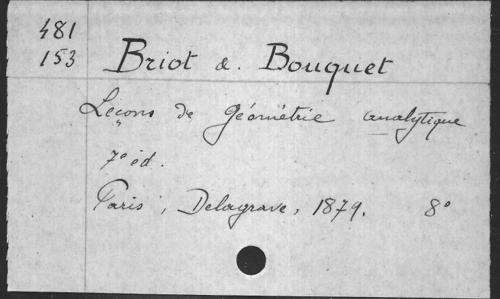 481
153
Briot & Bouquet
Leçons de géométrie analytique
7e éd.
Paris, Delagrave, 1879. 8°